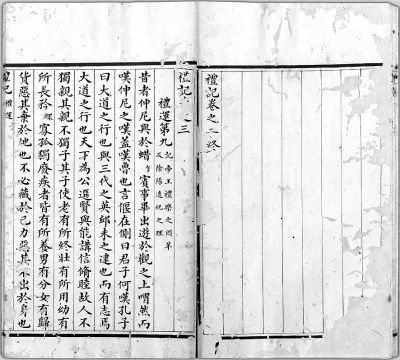 禮記卷之二終
禮記卷之三
禮運第九
記帝王禮樂之因革
及陰陽造化之理
昔者仲尼與於蜡賓事畢出遊於觀之上喟然而
嘆仲尼之嘆蓋嘆魯也言偃在側曰君子何嘆孔子
曰大道之行也與三代之英邱未之逮也而有志焉
大道之行也天下為公選賢與能講信脩睦故人不
獨親其親不獨子其子使老有所終壯有所用幼有
所長矜寡孤獨廢疾者皆有所養男有分女有歸
貨惡其棄於地也不必藏於己力惡其不出於身也
禮記 禮運